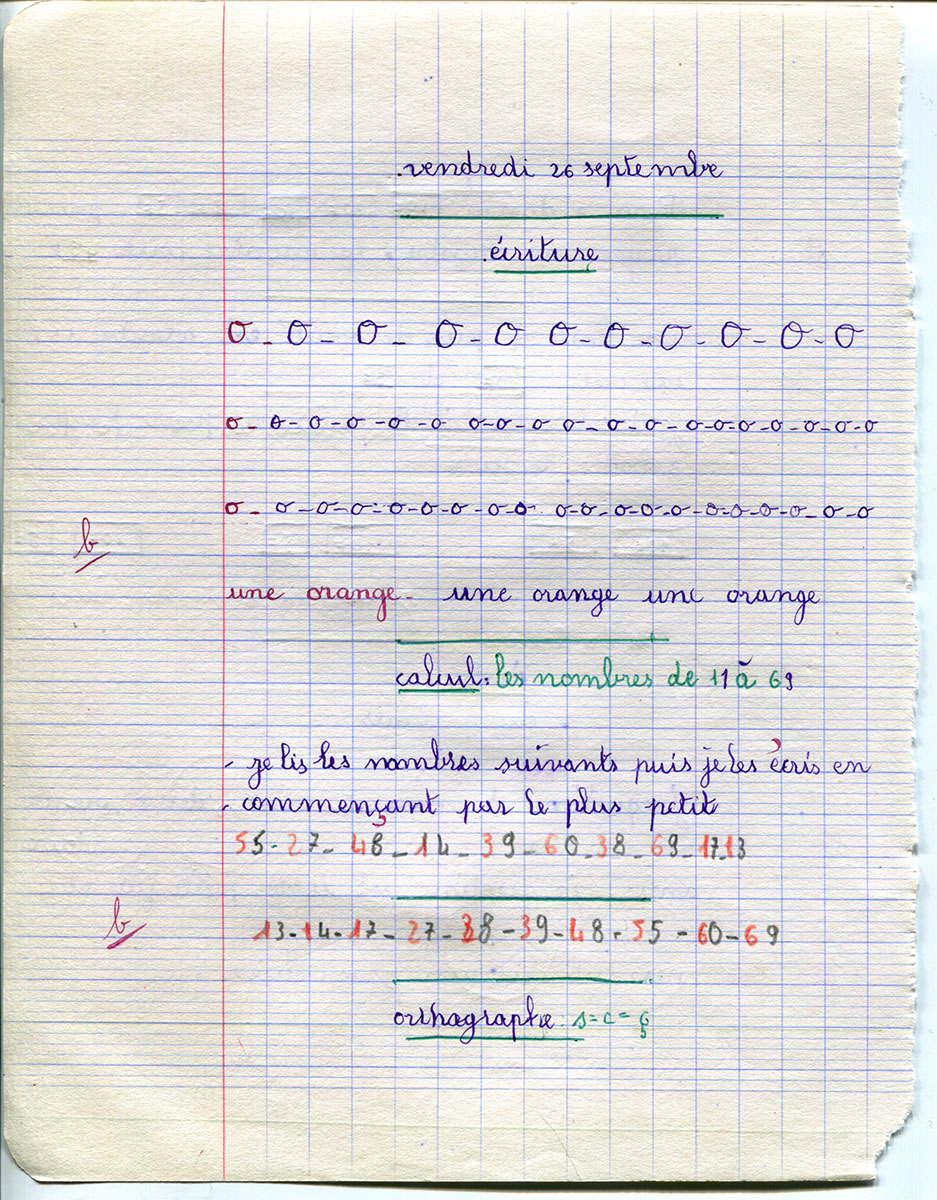 vendredi 26 septembre
écriture
o - o - o - o - o o - o - o - o - o - o
o - o - o - o - o - o o - o - o o - o - o - o - o = o - o - o - o - o
o - o - o - o = o - o - o - o - o o - o - o - o - o - o - o - o - o - o - o
b
une orange - une orange une orange
calcul : les nombres de 11 à 69
- je lis les nombres suivants puis je les écris en
- commençant par le plus petit
55 - 27 - 48 - 14 - 39 - 60 - 38 - 69 - 17 - 13
b
13 - 14 - 17 - 27 - 38 - 39 - 48 - 55 - 60 - 69
orthographe : s = c = ç